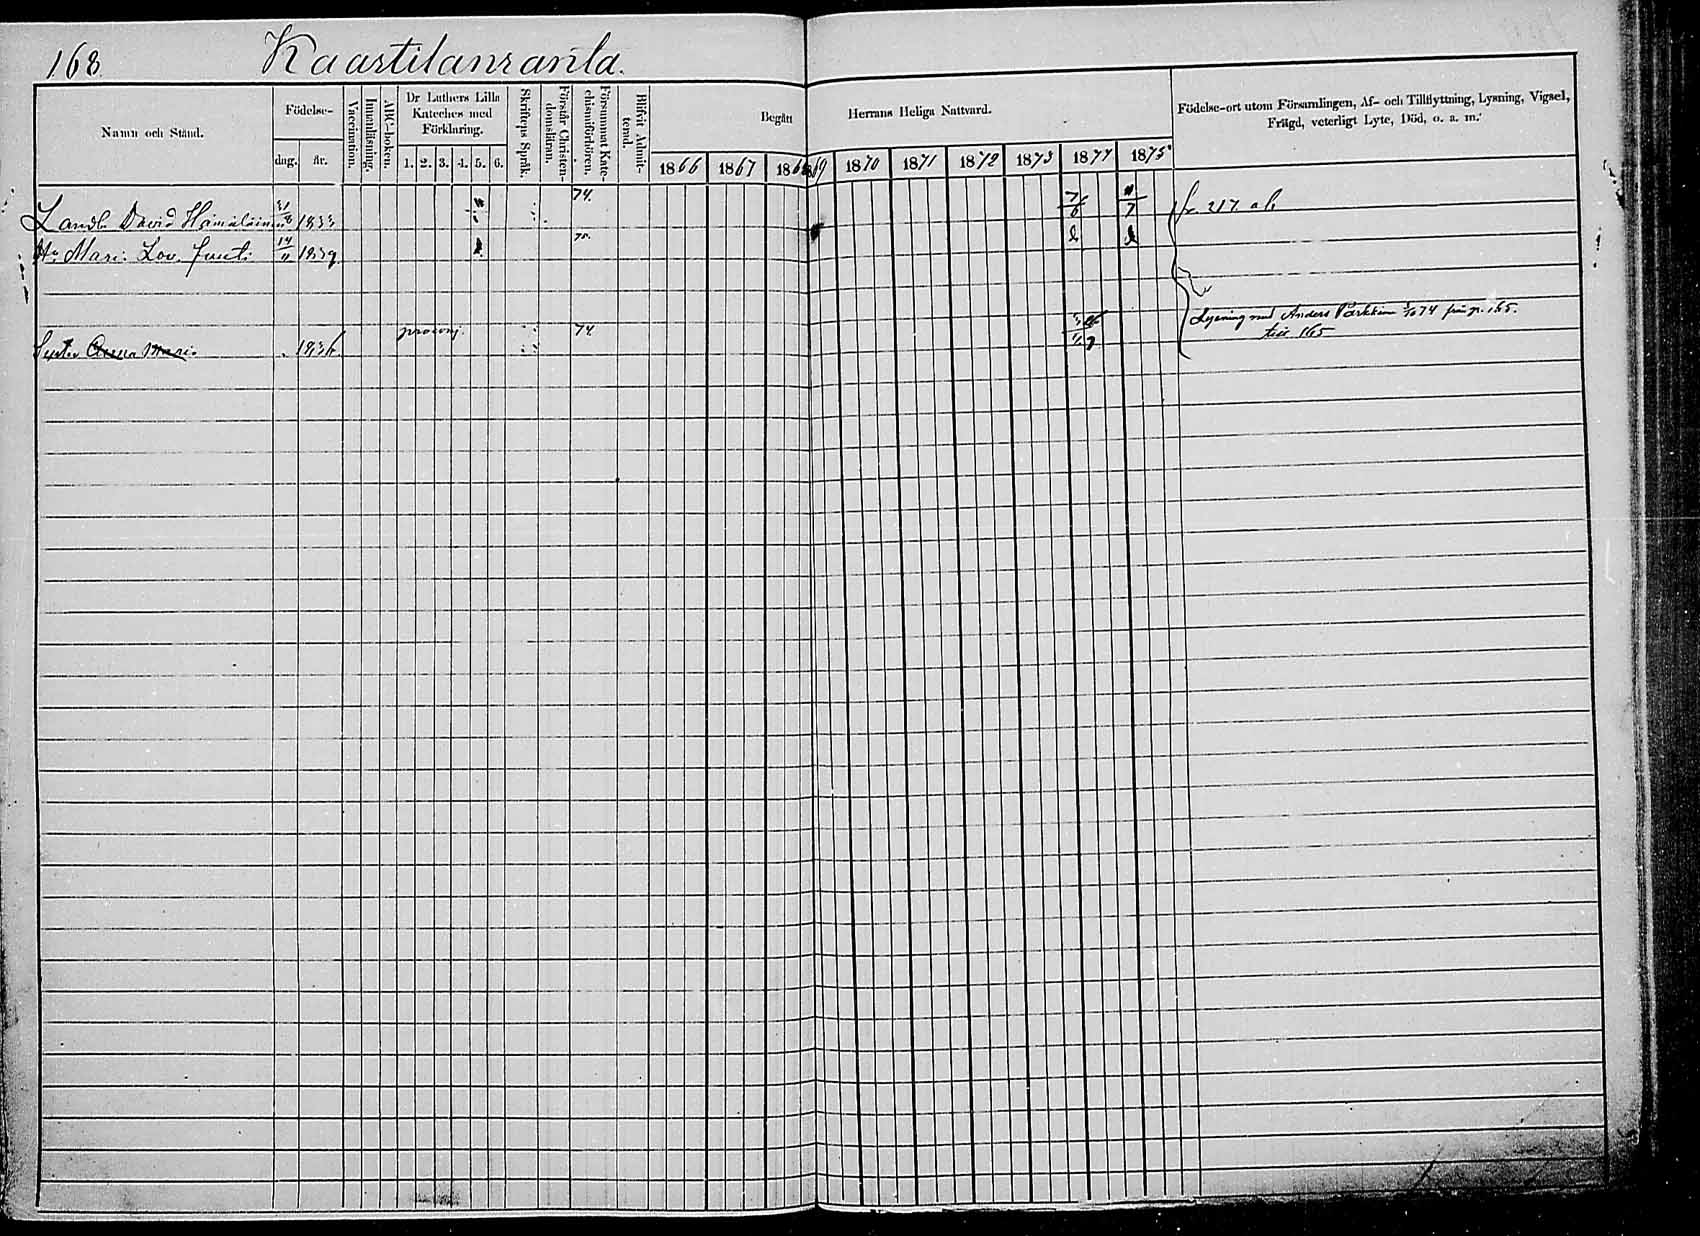 168 Kaartilanranta.
Namn och Stånd.
Födelse-
dag. år.
Vaccination.
Innanläsning.
ABC-boken.
Dr Luthers Lilla Kateches med Förklaring.
1. 2. 3. 4. 5. 6.
Skriftens Språk.
Förstår Christendomsläran.
Försummat Katechismiförhören.
Blifvit Admitterad.
Begått Herrans Heliga Nattvard.
1866 1867 186 69 1870 1871 1872 1873 1874 1875
Födelse-ort utom Församlingen, Af- och Tillflyttning, Lysning, Vigsel,
Frägd, veterligt Lyte, Död, o. a. m.
Landb. David Hämäläinen 31/8 1833 74. 7/6 7 fr. 217 ab
Hu Mari Lov. 14/11 1839 75.
Lysning med Anders 74 från p. 165.
till 165
Syster Anna Mari 74